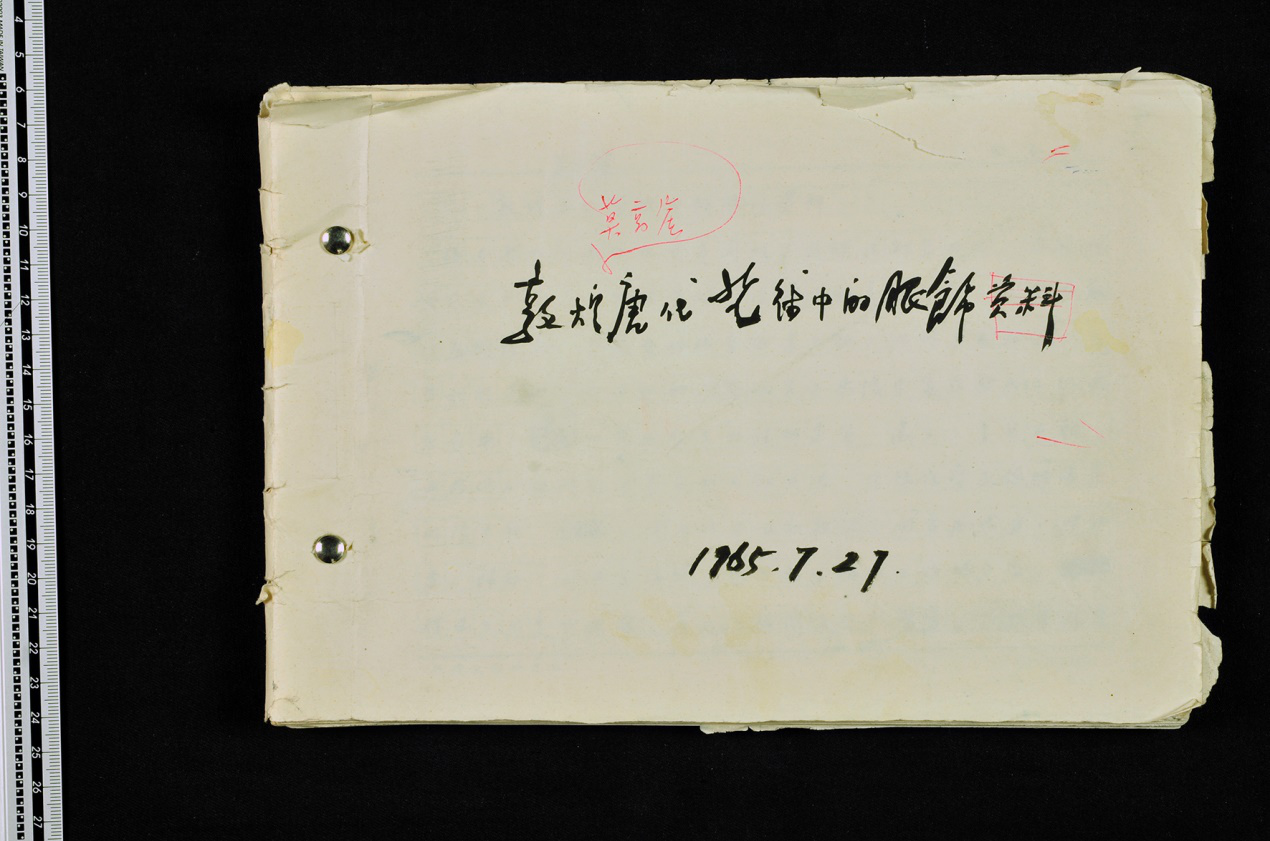 莫高窟
敦煌唐代艺术中的服飾资料
1965.7.27.
4
5
6
7
8
9
10
11
12
13
14
15
16
17
18
19
20
21
22
23
24
25
26
27